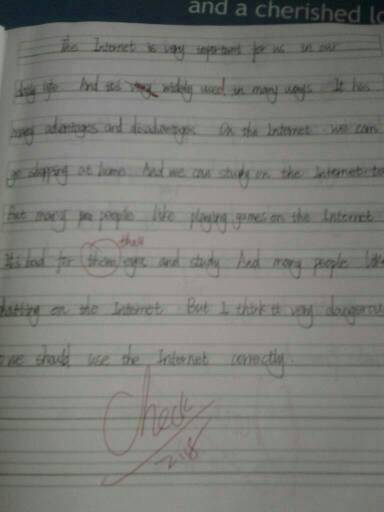 and a cherished
The Internet is very important for us in our
daily life And it's very widely used in many ways. It has
many advantages and disadvantages. On the Internet. we can
go shopping at home. And we can study on the Internet. to
But many peo people like playing games on the Internet
their
It's bad for them eyes and study And many people like
chatting on the Internet. But I think it very dangerous
we should use the Internet correctly.
Check